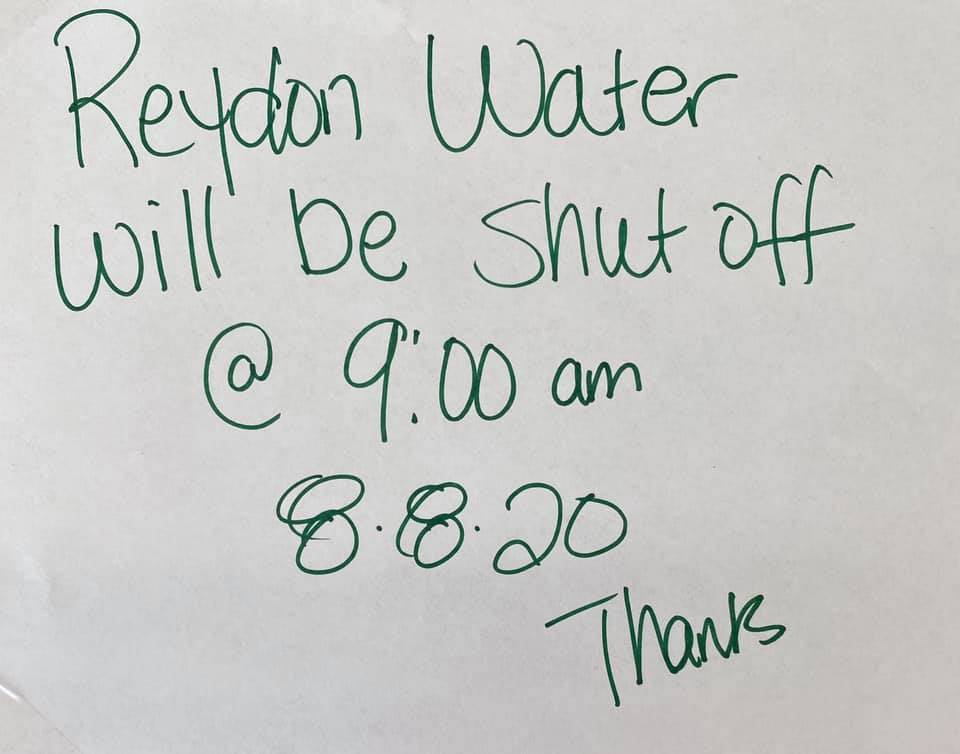 Reydon Water
will be shut off
@ 9:00 am
8.8.20
Thanks